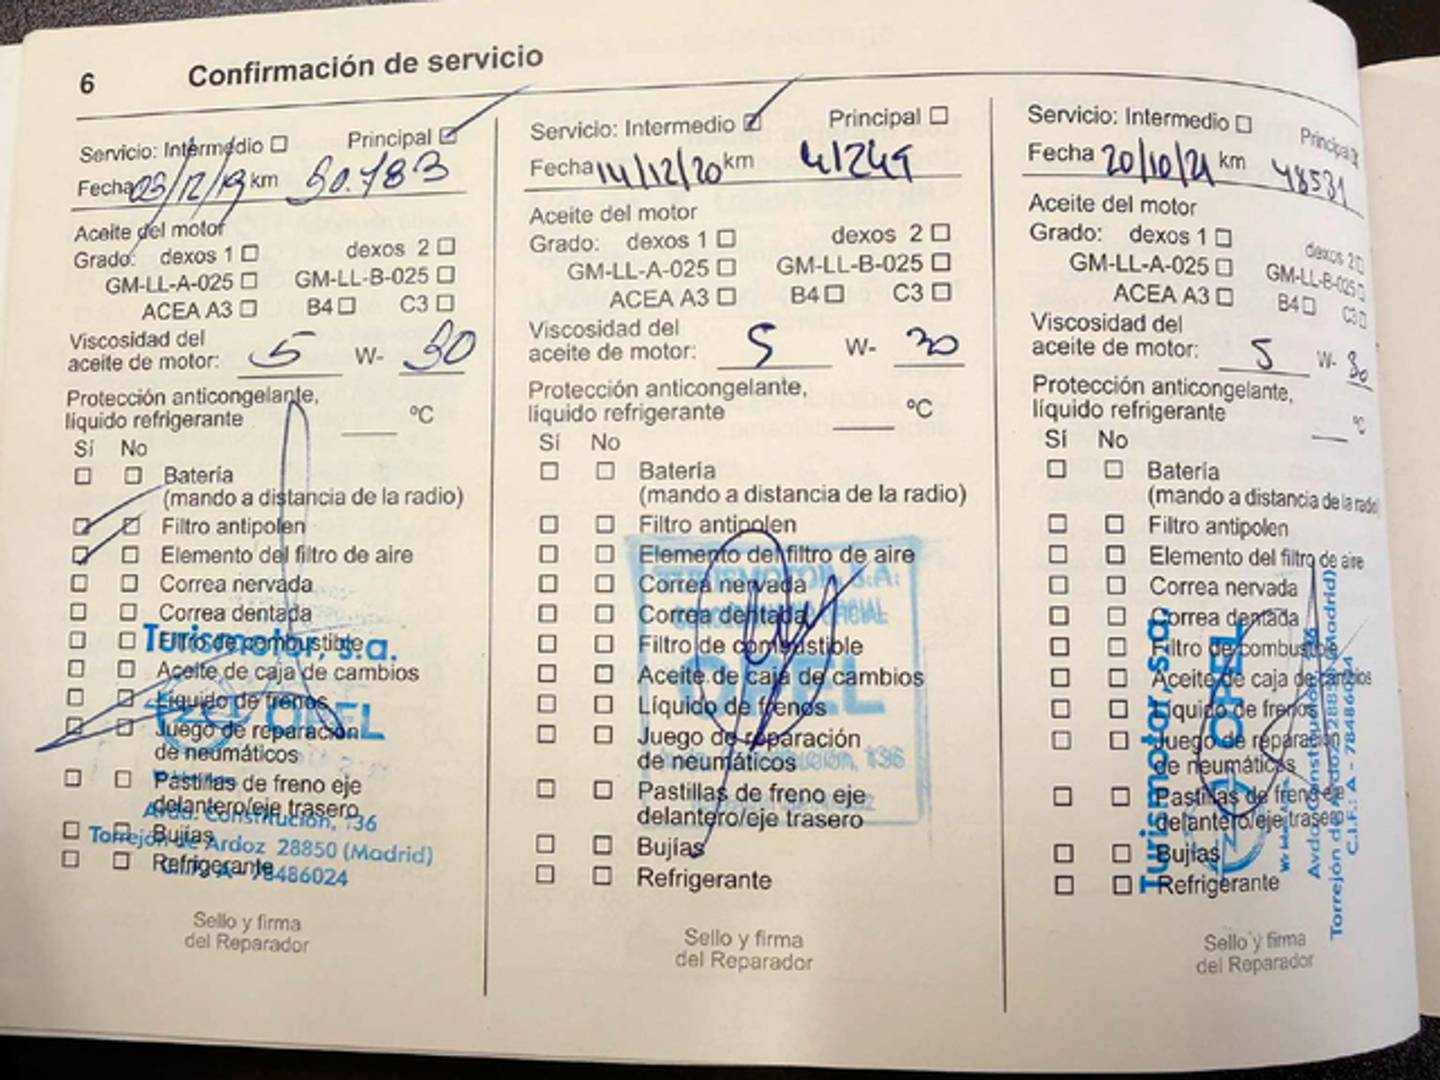 6 Confirmación de servicio
Servicio: Intermedio Principal
Fecha 03/12/19 km 30.783
Aceite del motor
Grado: dexos 1 dexos 2
GM-LL-A-025 GM-LL-B-025
ACEA A3 B4 C3
Viscosidad del
aceite de motor: 5 W- 30
Protección anticongelante,
líquido refrigerante °C
Sí No
Batería
(mando a distancia de la radio)
Filtro antipolen
Elemento del filtro de aire
Correa nervada
Correa dentada
Filtro de combustible
Aceite de caja de cambios
Líquido de frenos
Juego de reparación
de neumáticos
Pastillas de freno eje
delantero/eje trasero
Bujías
Refrigerante
Turismotor, s.a.
OPEL
Avda. Constitución, 136
Torrejón de Ardoz 28850 (Madrid)
C.I.F.: A - 78486024
Sello y firma
del Reparador
Servicio: Intermedio Principal
Fecha 14/12/20 km 41249
Aceite del motor
Grado: dexos 1 dexos 2
GM-LL-A-025 GM-LL-B-025
ACEA A3 B4 C3
Viscosidad del
aceite de motor: 5 W- 30
Protección anticongelante,
líquido refrigerante °C
Sí No
Batería
(mando a distancia de la radio)
Filtro antipolen
Elemento del filtro de aire
Correa nervada
Correa dentada
Filtro de combustible
Aceite de caja de cambios
Líquido de frenos
Juego de reparación
de neumáticos
Pastillas de freno eje
delantero/eje trasero
Bujías
Refrigerante
TURISMOTOR, S.A.
OPEL
136
Sello y firma
del Reparador
Servicio: Intermedio Principal
Fecha 20/10/21 km 48531
Aceite del motor
Grado: dexos 1 dexos 2
GM-LL-A-025 GM-LL-B-025
ACEA A3 B4 C3
Viscosidad del
aceite de motor: 5 W- 30
Protección anticongelante,
líquido refrigerante °C
Sí No
Batería
(mando a distancia de la radio)
Filtro antipolen
Elemento del filtro de aire
Correa nervada
Correa dentada
Filtro de combustible
Aceite de caja de cambios
Líquido de frenos
Juego de reparación
de neumáticos
Pastillas de freno eje
delantero/eje trasero
Bujías
Refrigerante
Turismotor, s.a.
OPEL
Avda. Constitución, 136
Torrejón de Ardoz 28850 (Madrid)
C.I.F.: A - 78486024
Sello y firma
del Reparador